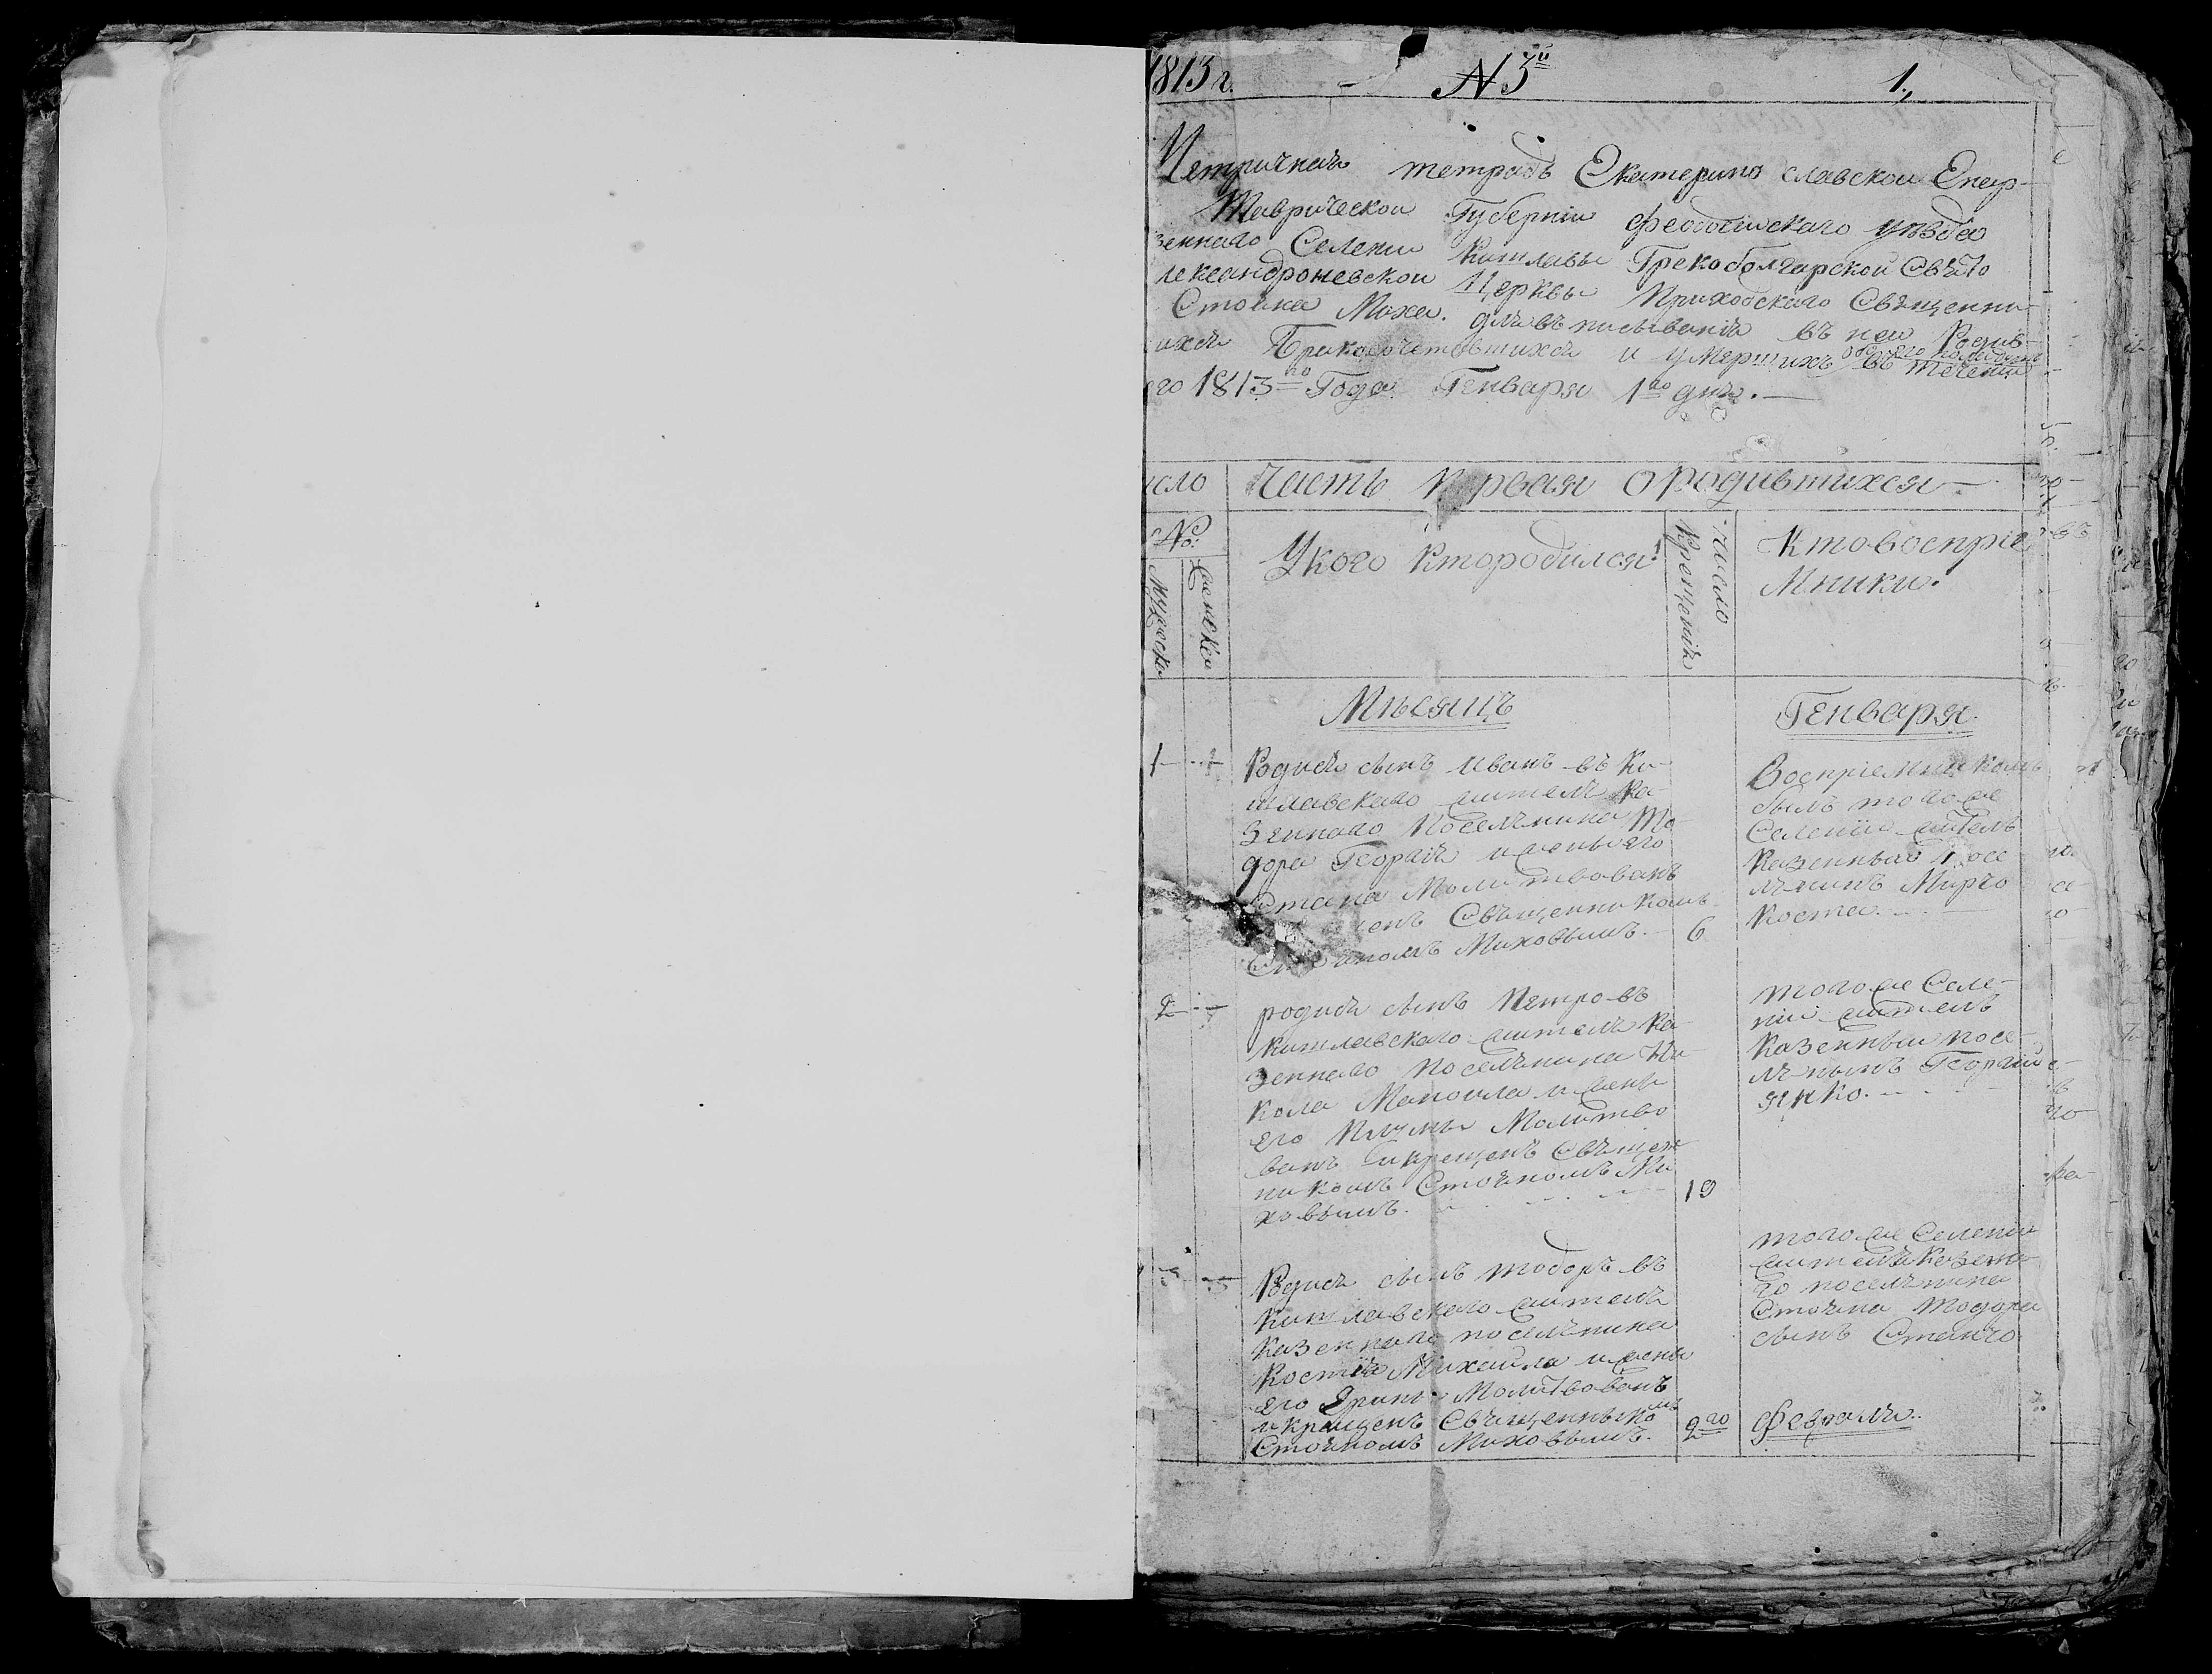 1813 г. N 3й 1.,
Метричнаѣ тетрадь Екатерино славскои Епар-
Таврическои Губернiи Феодосiискаго уѣзда
зеннаго Селенiи Кишлавы Грекоболгарской Свѣто
лександроневскои Церквы Приходскаго Свѣщенни-
Стоѣна Моха. длѣ въписыванiѣ въ неи Родив-
ихсѣ Бракосочетавшихсѣ и умершихъ въ теченiи
го 1813го Года Генваря 1го днѣ.
исло Часть Первая о родившихся
No:
Мужеска
Женска
У кого кто родился
Число
Крещенiѣ
Кто воспрiе
мники.
Мѣсяцъ Генваря.
1 Родисѣ сынъ Иванъ въ Ки-
шлавскаго жителѣ ка-
зеннаго поселѣнина То-
дора Георгiѣ и жены его
Стана Молитвованъ
щенъ Свѣщенникомъ
номъ Миховымъ. 6
Воспрiемникомъ
былъ того же
Селенiи житель
казенныи посе
лѣнинъ Мирчо
Коста.
2 родисѣ сынъ Петро въ
Кишлавскаго жителѣ ка-
зеннаго поселѣнина Ни-
кола Маноила и жены
его Молитво
ванъ и крещенъ Свѣщен-
никомъ Стоѣномъ Ми
ховымъ. 19
того же Селе-
нiи житель
казенныи посе-
лѣнинъ Георгiи
Янко.
3 Родисѣ сынъ тодоръ въ
Кишлавскаго жителѣ
казеннаго поселѣнина
Костѣ Михаила и жены
его Молитвованъ
и крещенъ Свѣщенникомъ
Стоѣномъ Миховымъ. 2го
того же Селенiи
жителѣ казенна-
го поселѣнина
Стоѣна Тодора
сынъ Станчо
Февралѣ.